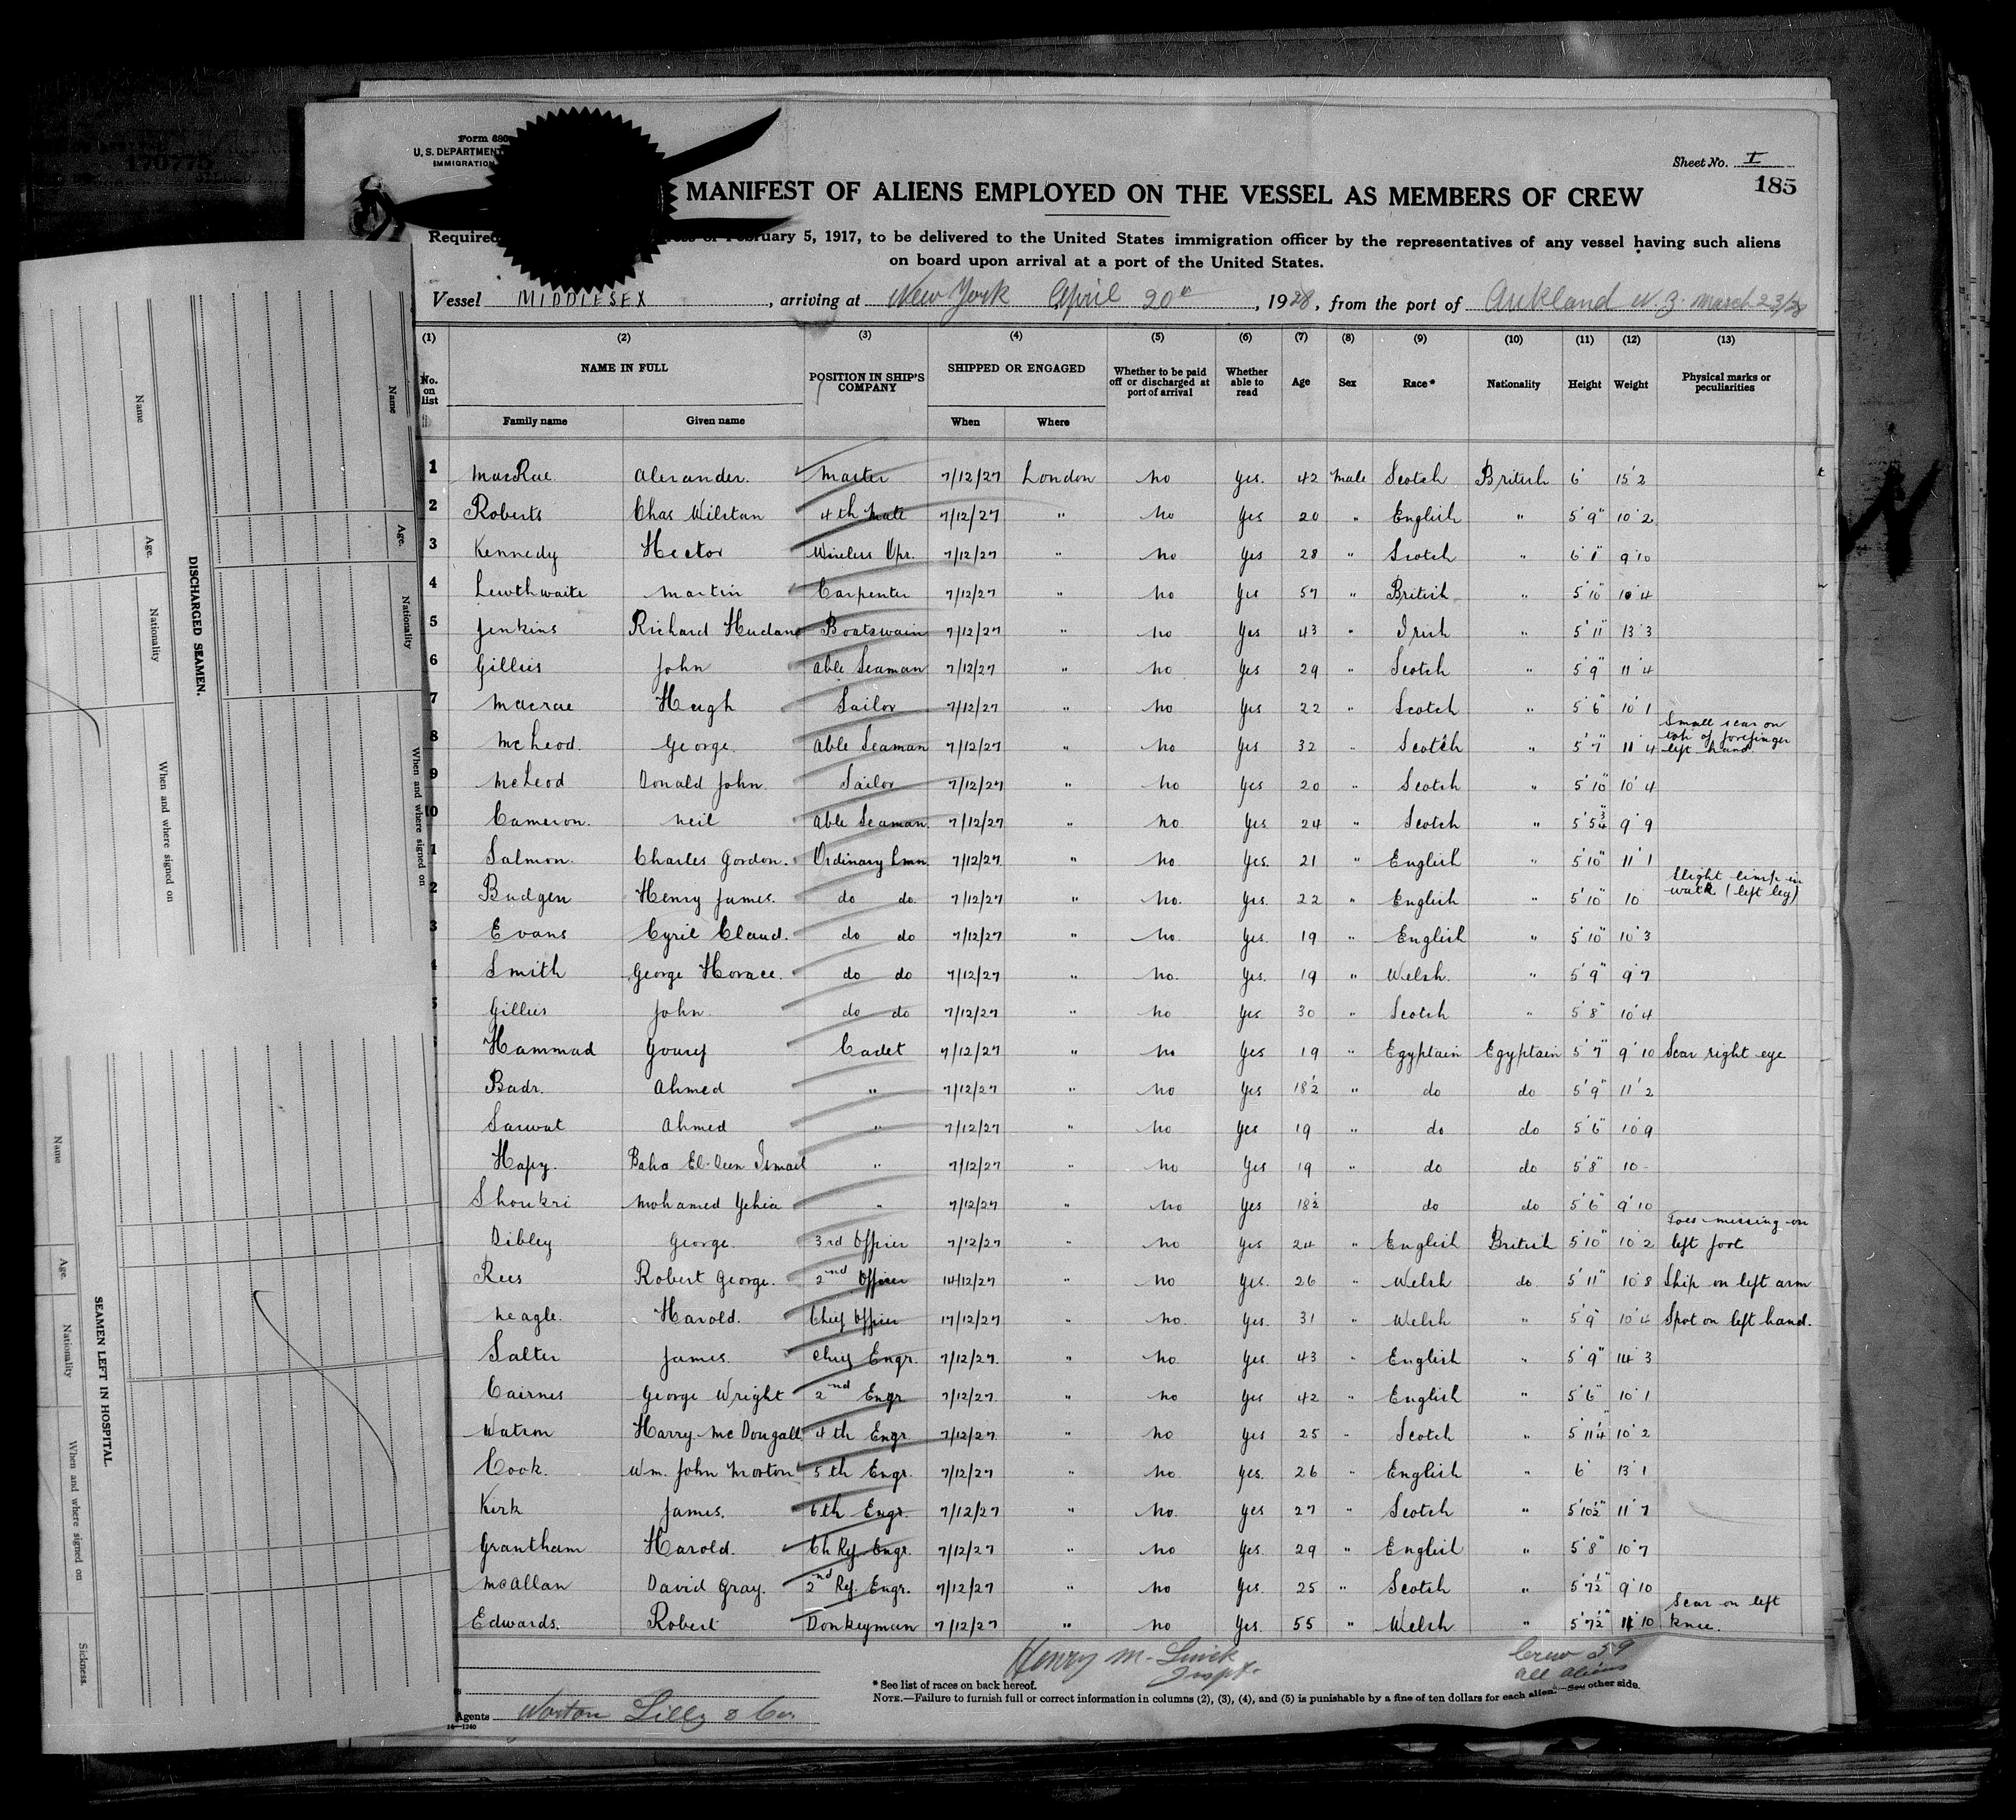 170775
Form 680
U. S. DEPARTMENT
IMMIGRATION
Sheet No. I
185
MANIFEST OF ALIENS EMPLOYED ON THE VESSEL AS MEMBERS OF CREW
Required February 5, 1917, to be delivered to the United States immigration officer by the representatives of any vessel having such aliens
on board upon arrival at a port of the United States.
Vessel MIDDLESEX, arriving at New York April 20th, 1928, from the port of Aukland N.Z. March 23/28
(1) (2) (3) (4) (5) (6) (7) (8) (9) (10) (11) (12) (13)
No. on list NAME IN FULL POSITION IN SHIP'S COMPANY SHIPPED OR ENGAGED Whether to be paid off or discharged at port of arrival Whether able to read Age Sex Race* Nationality Height Weight Physical marks or peculiarities
Family name Given name When Where
1 MacRae Alexander. Master 7/12/27 London No Yes. 42 Male Scotch British 6' 15'2
2 Roberts Chas Wilstan 4th Mate 7/12/27 " No Yes 20 " English " 5'9" 10'2
3 Kennedy Hector Wireless Opr. 7/12/27 " No Yes 28 " Scotch " 6'1" 9'10
4 Lewthwaite Martin Carpenter 7/12/27 " No Yes 57 " British " 5'10" 10'4
5 Jenkins Richard Boatswain 7/12/27 " No Yes 43 " Irish " 5'11" 13'3
6 Gillies John Able Seaman 7/12/27 " No Yes 29 " Scotch " 5'9" 11'4
7 Macrae Hugh Sailor 7/12/27 " No Yes 22 " Scotch " 5'6" 10'1
8 McLeod. George. Able Seaman 7/12/27 " No Yes 32 " Scotch " 5'7" 11'4 Small scar on top of forefinger left hand
9 McLeod Donald John Sailor 7/12/27 " No Yes 20 " Scotch " 5'10" 10'4
10 Cameron. Neil Able Seaman. 7/12/27 " No Yes. 24 " Scotch " 5'5¾" 9'9
1 Salmon. Charles Gordon. Ordinary Smn. 7/12/27 " No Yes. 21 " English " 5'10" 11'1
2 Budgen Henry James. do do. 7/12/27 " No. Yes. 22 " English " 5'10" 10 Slight limp in walk (left leg)
3 Evans Cyril Claud. do do 7/12/27 " No. Yes. 19 " English " 5'10" 10'3
4 Smith George Horace. do do 7/12/27 " No. Yes. 19 " Welsh. " 5'9" 9'7
5 Gillies John. do do 7/12/27 " No Yes 30 " Scotch " 5'8" 10'4
Hammad Yousef Cadet 7/12/27 " No Yes 19 " Egyptain Egyptain 5'7" 9'10 Scar right eye
Badr. Ahmed " 7/12/27 " No Yes 18½ " do do 5'9" 11'2
Sarwat Ahmed " 7/12/27 " No Yes 19 " do do 5'6" 10'9
Hapy. Baha El-Deen Ismael " 7/12/27 " No Yes 19 " do do 5'8" 10-
Shoukri Mohamed Yehia " 7/12/27 " No Yes 18½ do do 5'6" 9'10
Dibley George 3rd Officer 7/12/27 " No Yes 24 " English British 5'10" 10'2 Toes missing on left foot
Rees Robert George. 2nd Officer 14/12/27 " No Yes. 26 " Welsh do. 5'11" 10'8 Ship on left arm
Neagle. Harold. Chief Officer 17/12/27 " No. Yes. 31 " Welsh " 5'9" 10'4 Spot on left hand.
Salter James. Chief Engr. 7/12/27. " No Yes. 43 " English " 5'9" 14'3
Cairnes George Wright 2nd Engr 7/12/27. " No Yes 42 " English " 5'6" 10'1
Watson Harry McDougall 4th Engr. 7/12/27. " No Yes 25 " Scotch " 5'11¼" 10'2
Cook. Wm. John Morton 5th Engr. 7/12/27 " No Yes. 26 " English " 6' 13'1
Kirk James. 6th Engr. 7/12/27 " No. Yes 27 " Scotch " 5'10½" 11'7
Grantham Harold. Ch Ref. Engr. 7/12/27 " No Yes. 29 " English " 5'8" 10'7
McAllan David Gray. 2nd Ref. Engr. 7/12/27 " No Yes. 25 " Scotch " 5'7½" 9'10
Edwards. Robert Donkeyman 7/12/27 " No Yes. 55 " Welsh " 5'7½" 11'10 Scar on left knee.
Henry M.
Inspt.
Crew 59
all aliens
* See list of races on back hereof.
NOTE.—Failure to furnish full or correct information in columns (2), (3), (4), and (5) is punishable by a fine of ten dollars for each alien.—See other side.
Agents Norton Lilly & Co
14—1240
DISCHARGED SEAMEN.
Name Age. Nationality When and where signed on
Name Age. Nationality When and where signed on
SEAMEN LEFT IN HOSPITAL.
Name Age. Nationality When and where signed on Sickness.